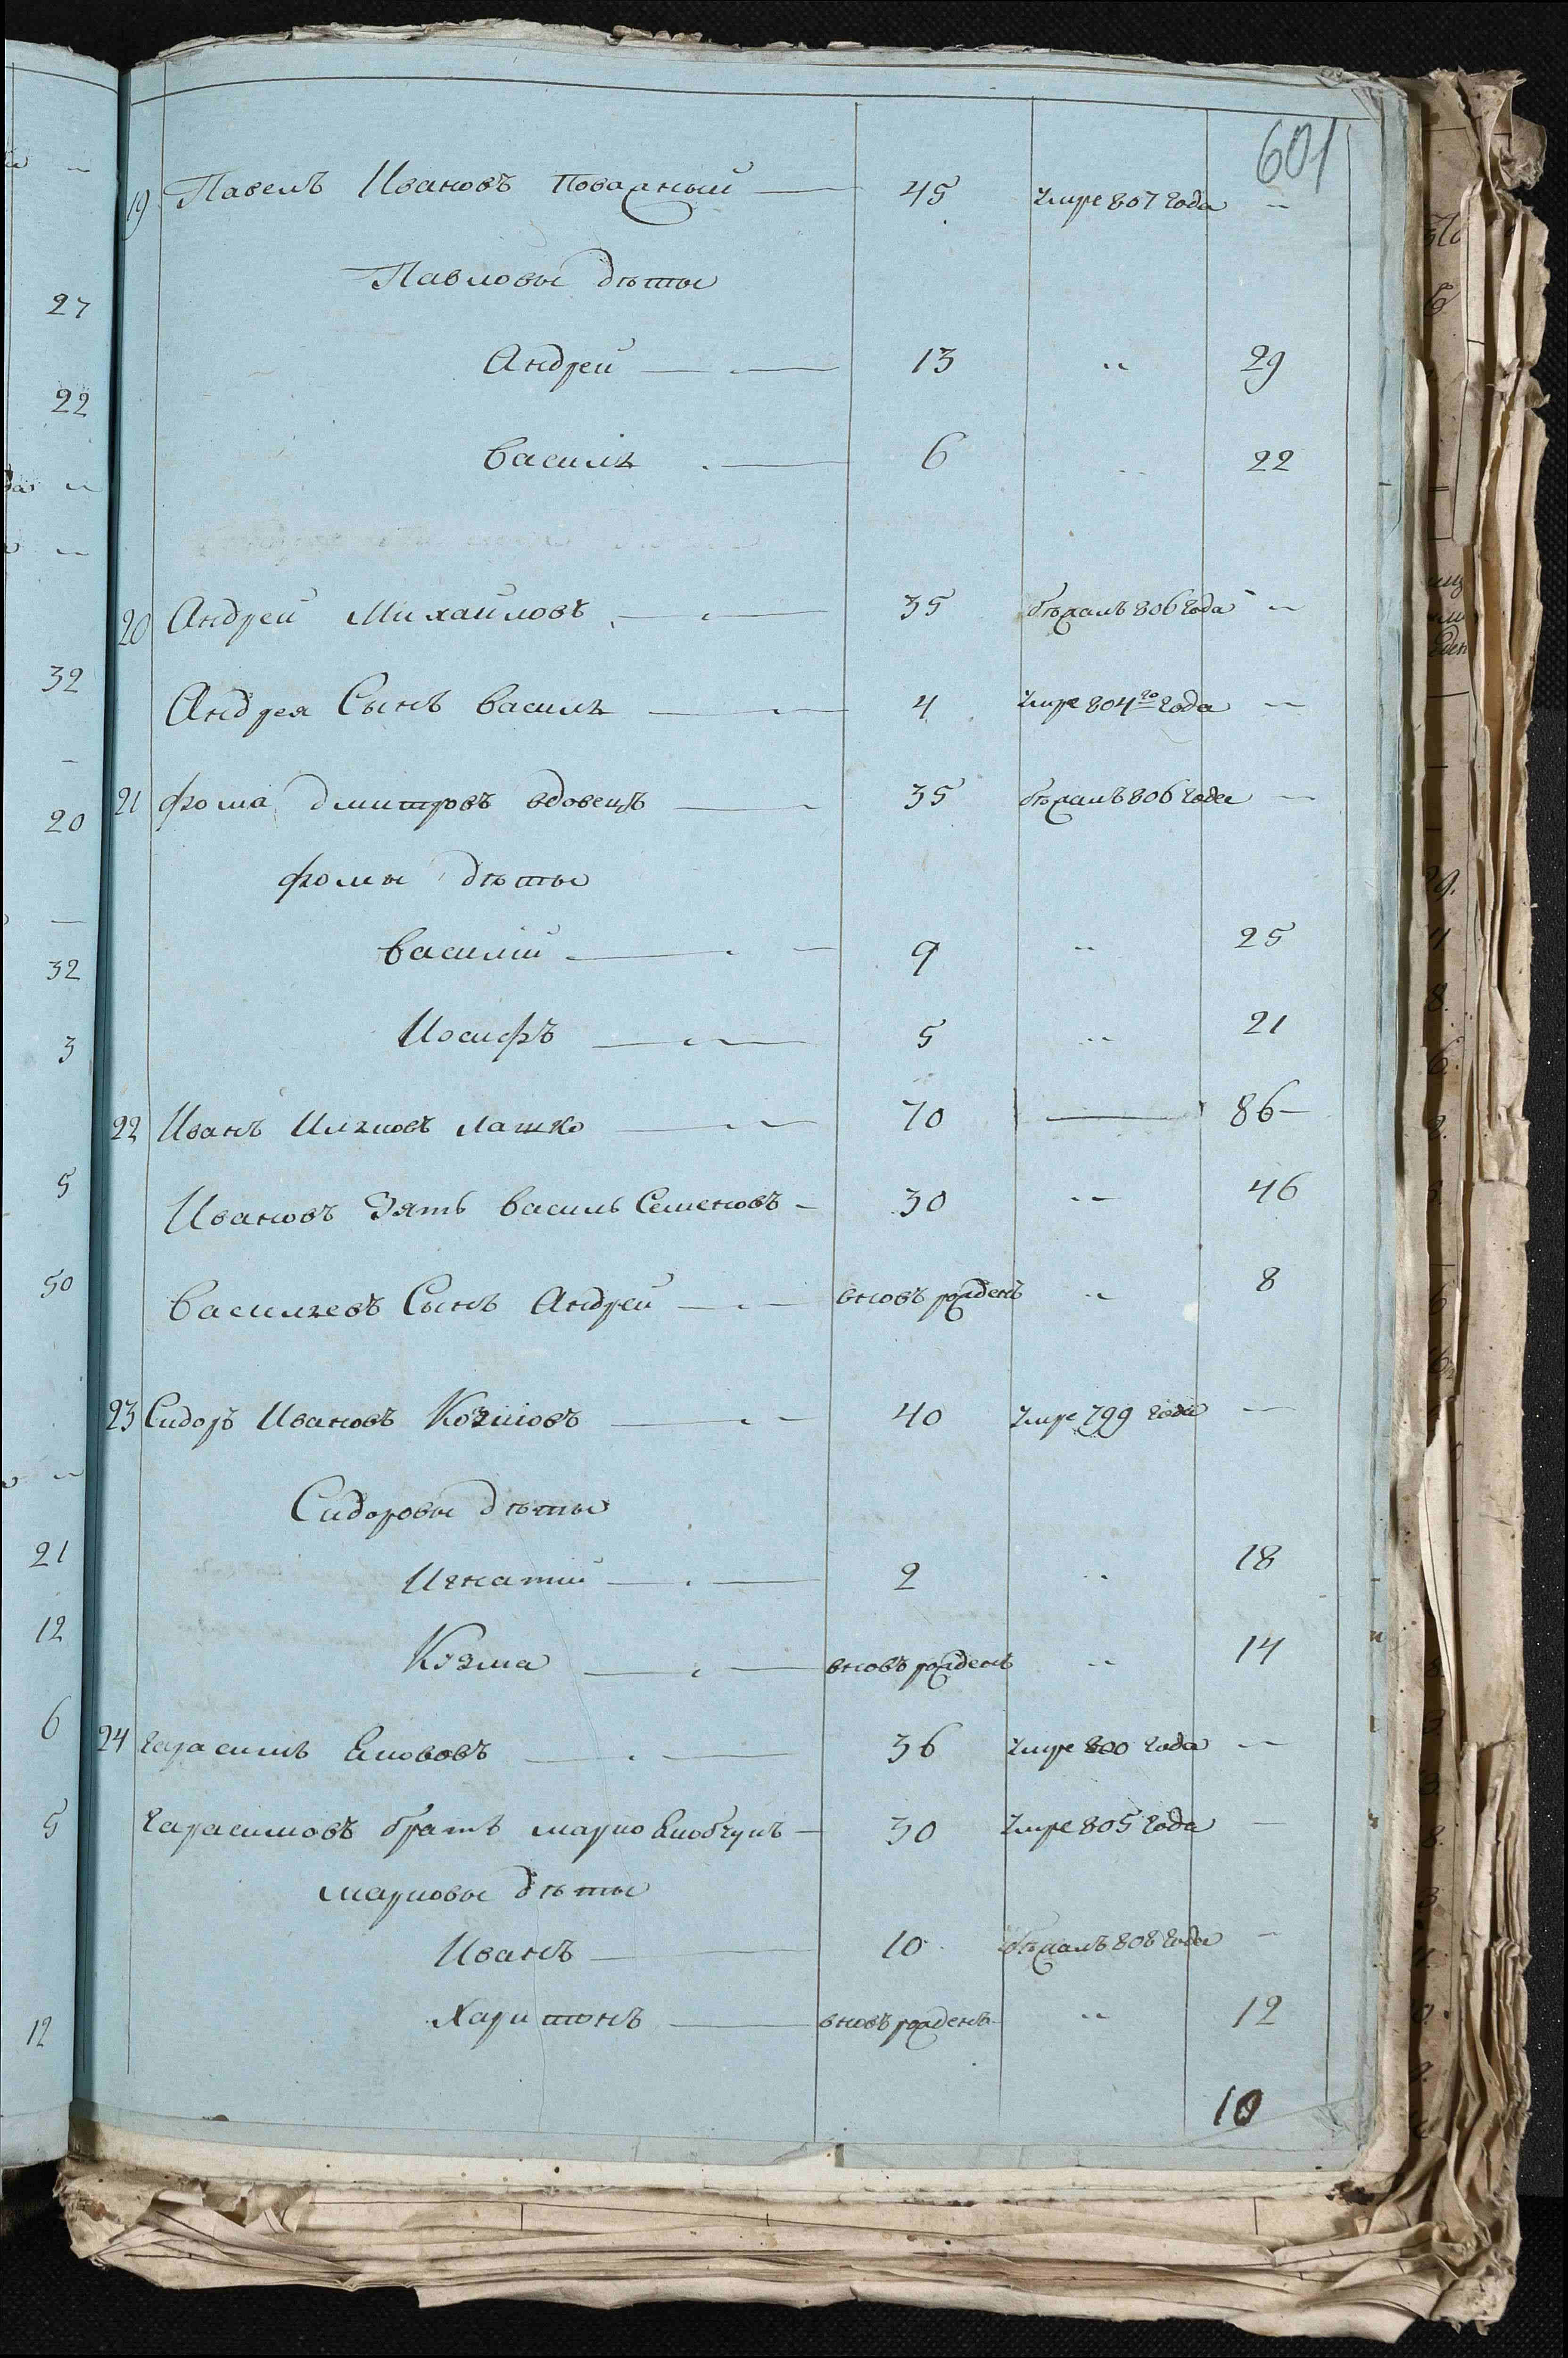 601
19 Павелъ Ивановъ Поважный — 45 умре 807 года „
Павловы дѣты
Андрей — 13 „ 29
Василь — 6 „ 22
20 Андрей Михайловъ — 35 бѣжалъ 806 года „
Андрея Сынъ василь — 4 умре 804го года „
21 фома дмитровъ вдовецъ — 35 бѣжалъ 806 года —
фомы дѣты
василій — 9 „ 25
Иосифъ — 5 „ 21
22 Иванъ Илковъ — 70 — 86 —
Ивановъ Зять василь Семеновъ — 30 „ 46
василевъ Сынъ Андрей — вновь рожденъ „ 8
23 Сидоръ Ивановъ — 40 умре 799 года —
Сидоровы дѣты
Игнатій — 2 „ 18
Козма — вновь рожденъ „ 14
24 гарасимъ — 36 умре 800 года „
гарасимовъ братъ марко — 30 умре 805 года —
марковы дѣты
Иванъ — 10 бѣжалъ 808 года —
Харитонъ — вновь рожденъ „ 12
10
27
22
32
20
32
3
5
50
21
12
6
5
12